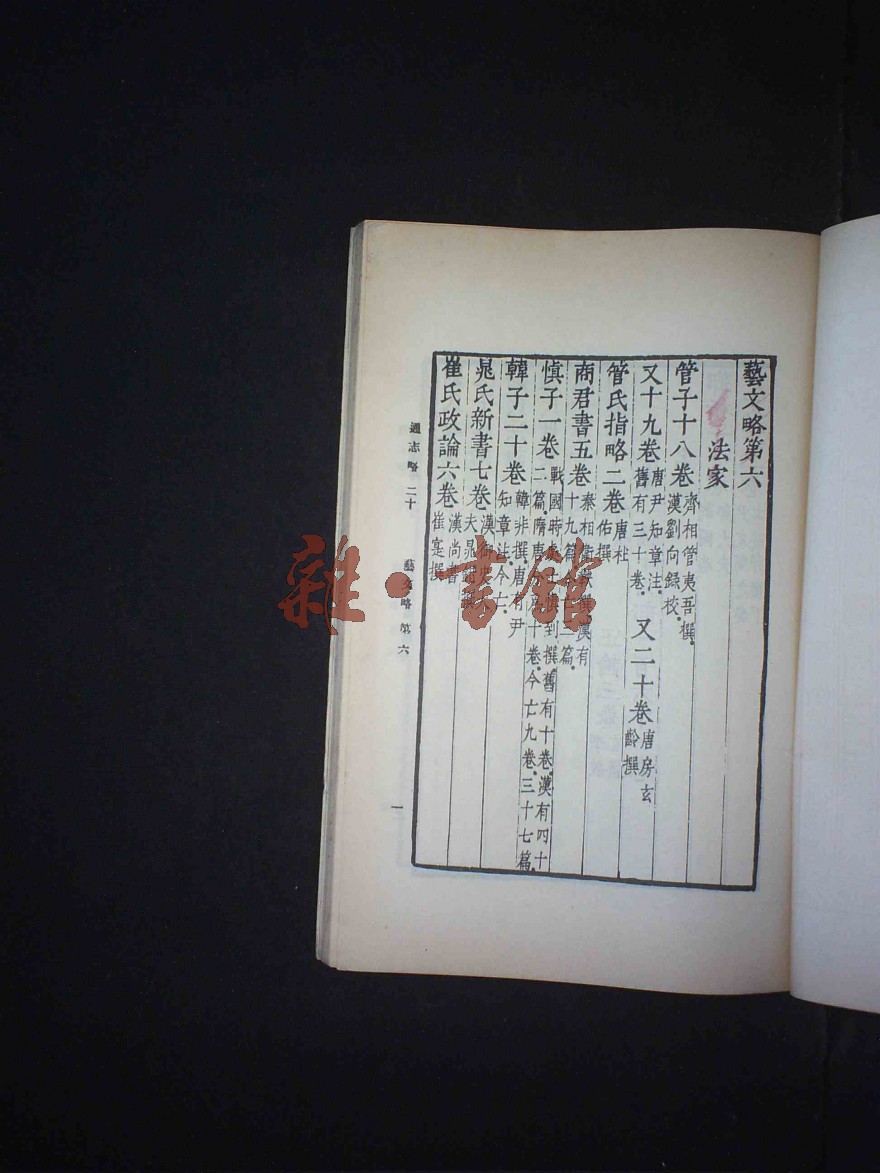 藝文略第六
法家
管子十八卷 齊相管夷吾撰。漢劉向錄校。
又十九卷 唐尹知章注。舊有三十卷。 又二十卷 唐房玄齡撰
管氏指略二卷 唐杜佑撰
商君書五卷 秦相衞鞅撰漢有十九篇今亡三篇。
慎子一卷 戰國時處士慎到撰舊有十卷。漢有四十二篇。隋唐分爲十卷。今亡九卷。三十七篇。
韓子二十卷 韓非撰。唐有尹知章注。今亡。
晁氏新書七卷 漢御史大夫晁錯撰
崔氏政論六卷 漢尚書崔寔撰
通志略 二十 藝文略 第六 一
雜·書館